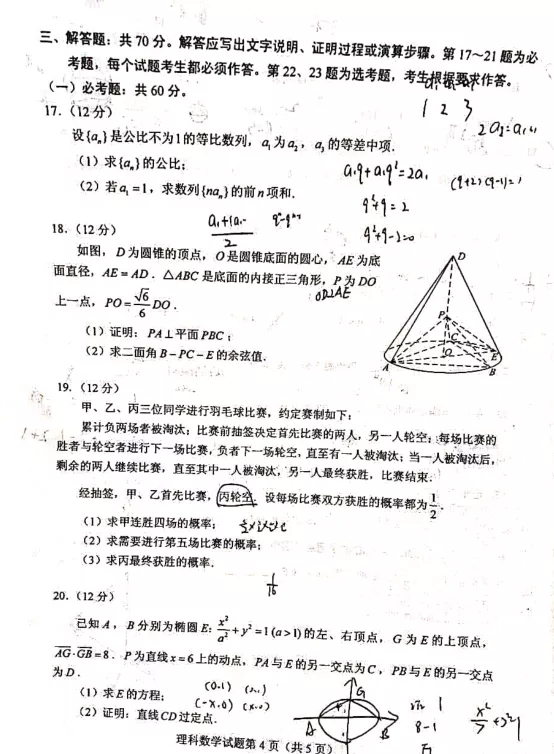 三、解答题：共 70 分。解答应写出文字说明、证明过程或演算步骤。第 17～21 题为必
考题，每个试题考生都必须作答。第 22、23 题为选考题，考生根据要求作答。
（一）必考题：共 60 分。
1 2 3
17.（12 分）
2a₁=a₁(
设{aₙ}是公比不为1的等比数列，a₁为a₂，a₃的等差中项.
（1）求{aₙ}的公比；
a₁q+a₁q²=2a₁
（2）若a₁=1，求数列{naₙ}的前n项和.
(q+2)(q-1)=
q²+q=2
18.（12 分）
q²+q-2=0
如图，D为圆锥的顶点，O是圆锥底面的圆心，AE为底
面直径，AE=AD．△ABC是底面的内接正三角形，P为DO
OD⊥AE
上一点，PO=√6/6 DO．
（1）证明：PA⊥平面PBC；
（2）求二面角B-PC-E的余弦值.
D
P
C
O
A
E
B
19.（12 分）
甲、乙、丙三位同学进行羽毛球比赛，约定赛制如下：
累计负两场者被淘汰；比赛前抽签决定首先比赛的两人，另一人轮空；每场比赛的
胜者与轮空者进行下一场比赛，负者下一场轮空，直至有一人被淘汰；当一人被淘汰后，
剩余的两人继续比赛，直至其中一人被淘汰，另一人最终获胜，比赛结束.
经抽签，甲、乙首先比赛，丙轮空．设每场比赛双方获胜的概率都为1/2．
（1）求甲连胜四场的概率；
（2）求需要进行第五场比赛的概率；
（3）求丙最终获胜的概率.
1/16
20.（12 分）
已知A，B分别为椭圆E：x²/a²+y²=1(a>1)的左、右顶点，G为E的上顶点，
AG·GB=8．P为直线x=6上的动点，PA与E的另一交点为C，PB与E的另一交点
为D．
（1）求E的方程；
(0.1)
（2）证明：直线CD过定点.
(-x.0) (x.0)
G
A
B
8-1
理科数学试题第 4 页（共 5 页）